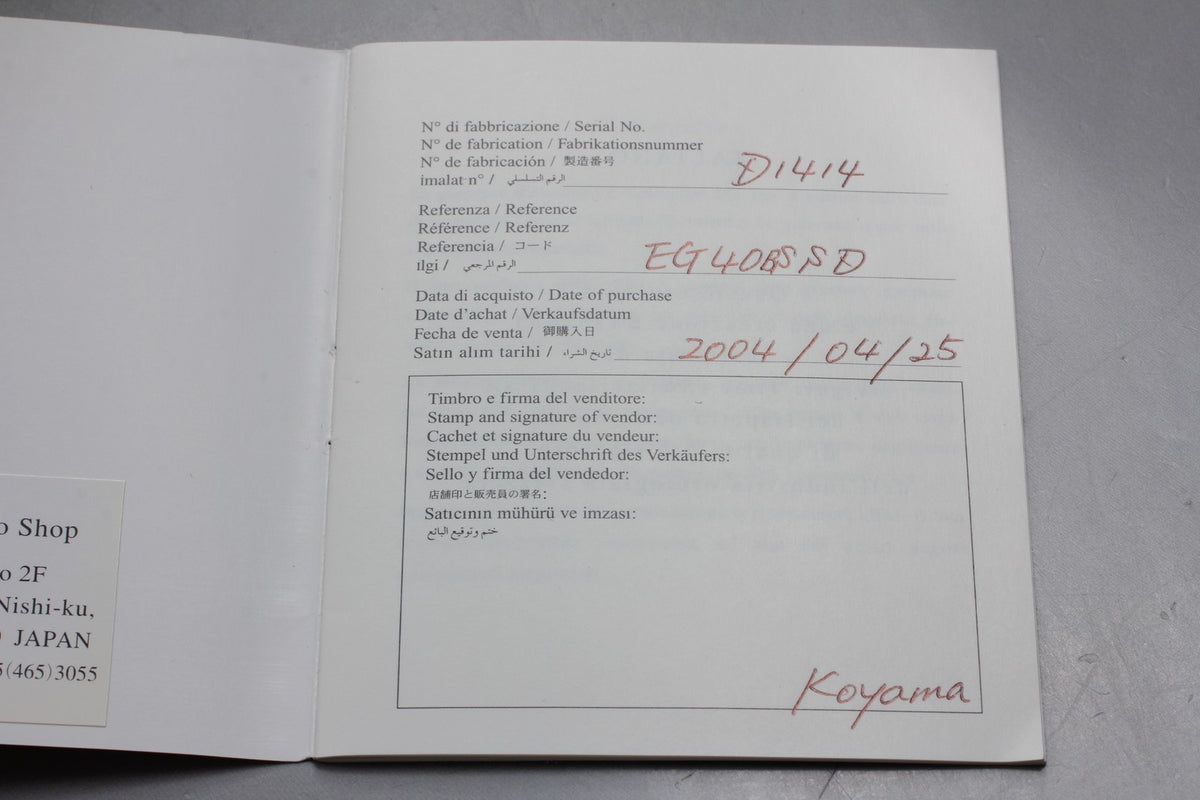 o Shop
o 2F
Nishi-ku,
JAPAN
5(465)3055
N° di fabbricazione / Serial No.
N° de fabrication / Fabrikationsnummer
N° de fabricación / 製造番号
imalat n° / الرقم التسلسلي D1414
Referenza / Reference
Référence / Referenz
Referencia / コード
ılgi / الرقم المرجعي EG40BSSD
Data di acquisto / Date of purchase
Date d'achat / Verkaufsdatum
Fecha de venta / 御購入日
Satın alım tarihi / تاريخ الشراء 2004/04/25
Timbro e firma del venditore:
Stamp and signature of vendor:
Cachet et signature du vendeur:
Stempel und Unterschrift des Verkäufers:
Sello y firma del vendedor:
店舗印と販売員の署名:
Satıcının mühürü ve imzası:
ختم وتوقيع البائع
Koyama